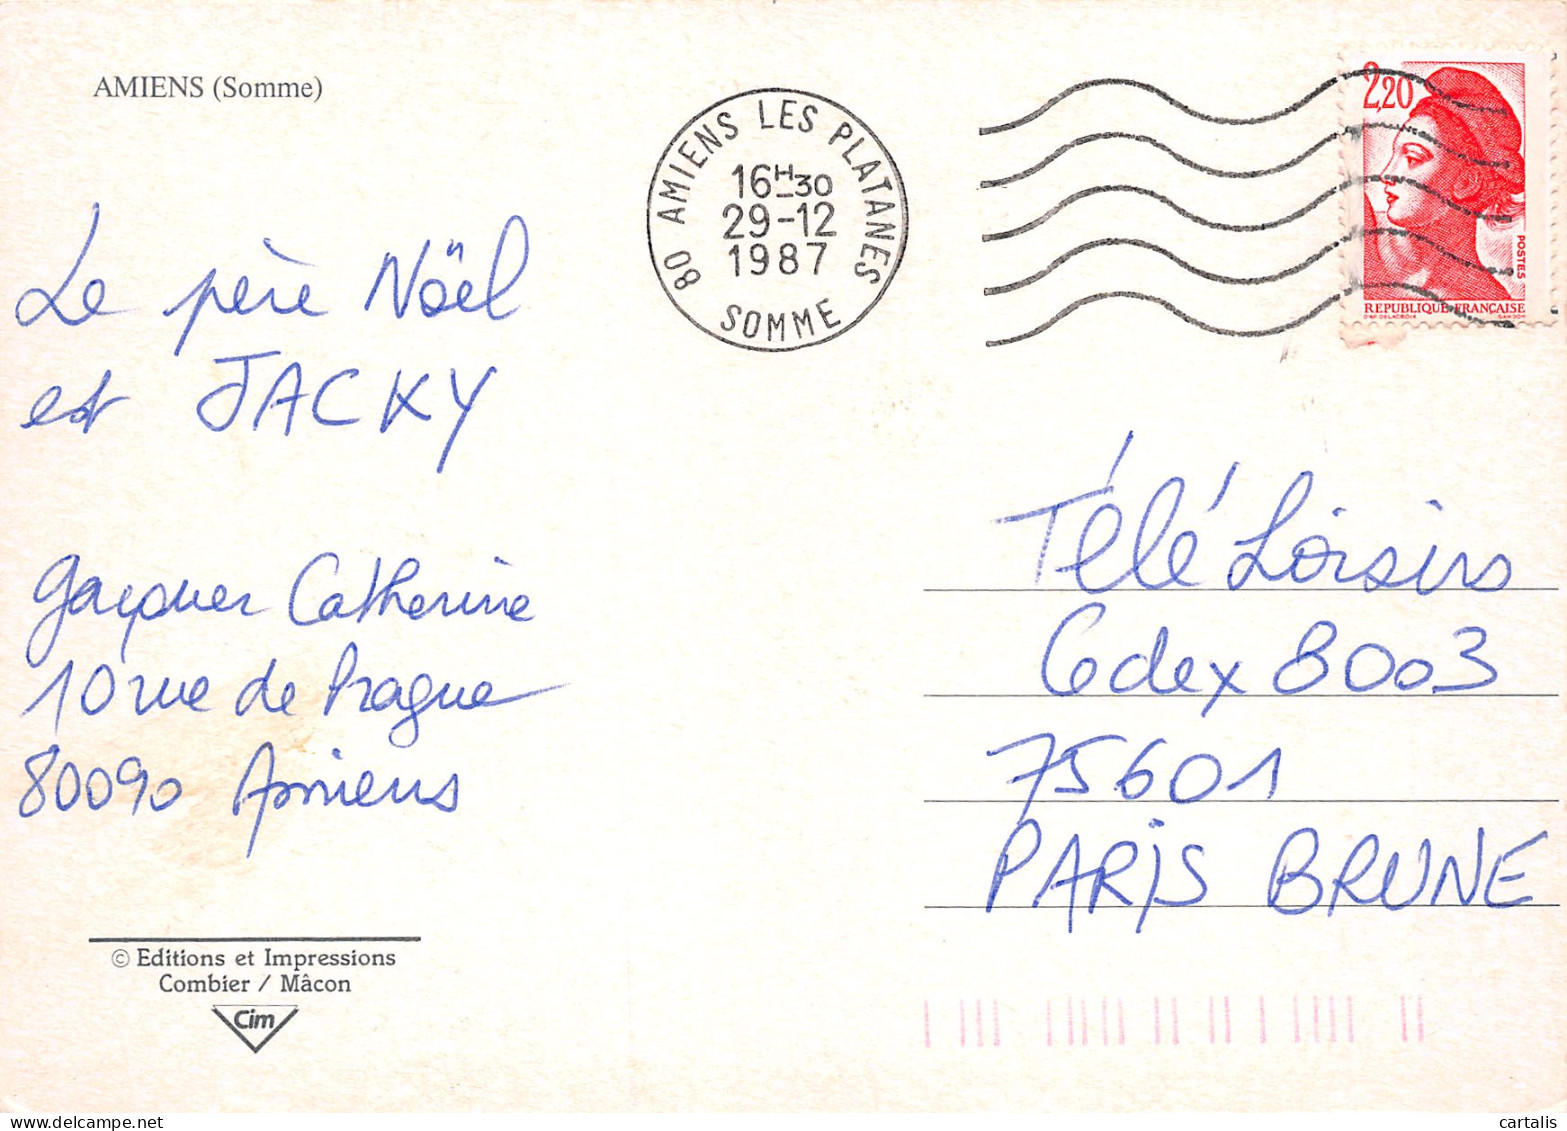 AMIENS (Somme)
80 AMIENS LES PLATANES
16H30
29-12
1987
SOMME
2,20
POSTES
REPUBLIQUE FRANÇAISE
D'AP. DELACROIX GANDON
Le père Noël
et JACKY
Gacquer Catherine
10 rue de Prague
80090 Amiens
Télé Loisirs
Cedex 8003
75601
PARIS BRUNE
© Editions et Impressions
Combier / Mâcon
Cim
cartalis